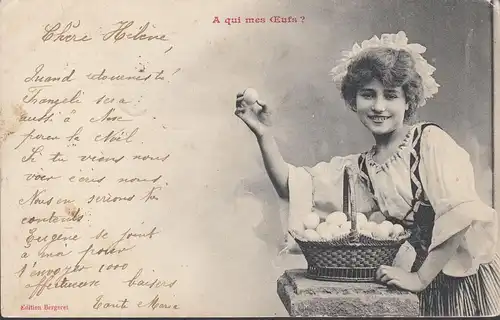 A qui mes Œufs ?
Chère Hélène,
Quand retournes tu!
sera
aussi à
pour la Noël.
Si tu viens nous
voir écris nous
Nous en serions très
contents
Eugène se joint
à moi pour
t'envoyer 1000
affectueux baisers
Tante Maria
Edition Bergeret